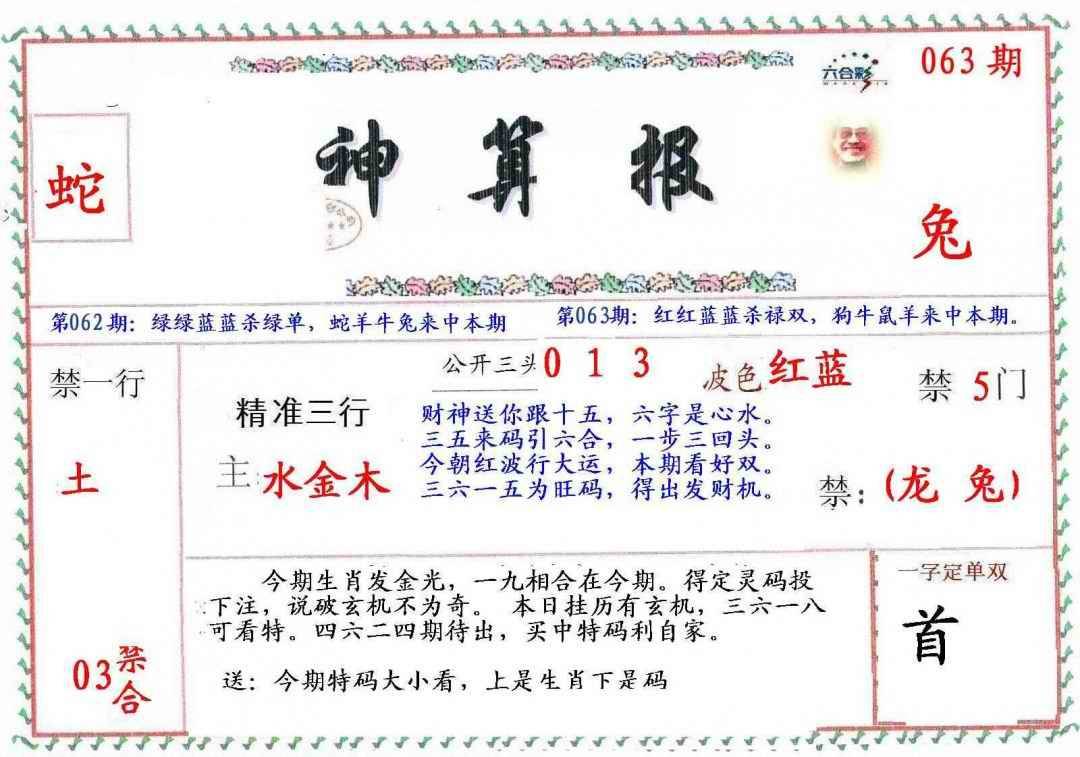 063期
六合彩
神算报
蛇
兔
第062期：绿绿蓝蓝杀绿单，蛇羊牛兔来中本期
第063期：红红蓝蓝杀禄双，狗牛鼠羊来中本期。
禁一行
土
03禁合
公开三头0 1 3
波色红蓝
禁5门
精准三行
主：水金木
财神送你跟十五，六字是心水。
三五来码引六合，一步三回头。
今朝红波行大运，本期看好双。
三六一五为旺码，得出发财机。
禁：(龙 兔)
今期生肖发金光，一九相合在今期。得定灵码投
下注，说破玄机不为奇。 本日挂历有玄机，三六一八
可看特。四六二四期待出，买中特码利自家。
送：今期特码大小看，上是生肖下是码
一字定单双
首